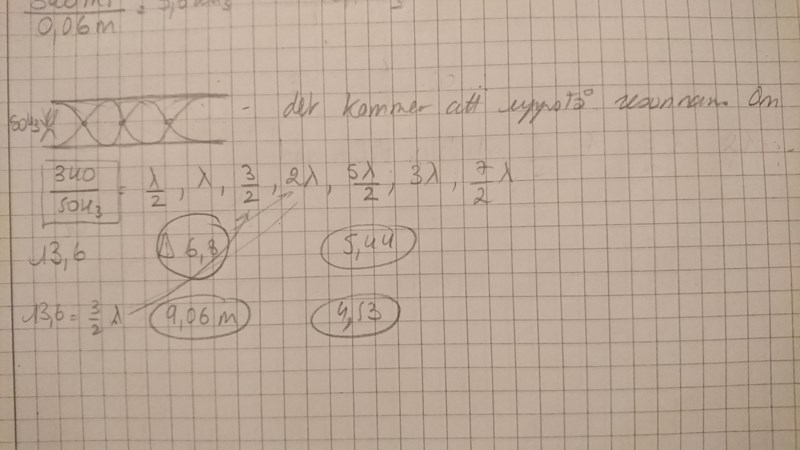 0,06m
det kommer att uppstå resonnans. Om
340/50Hz = λ/2, λ, 3/2, 2λ, 5λ/2, 3λ, 7/2 λ
13,6 6,8 5,44
13,6 = 3/2 λ 9,06 m 4,53